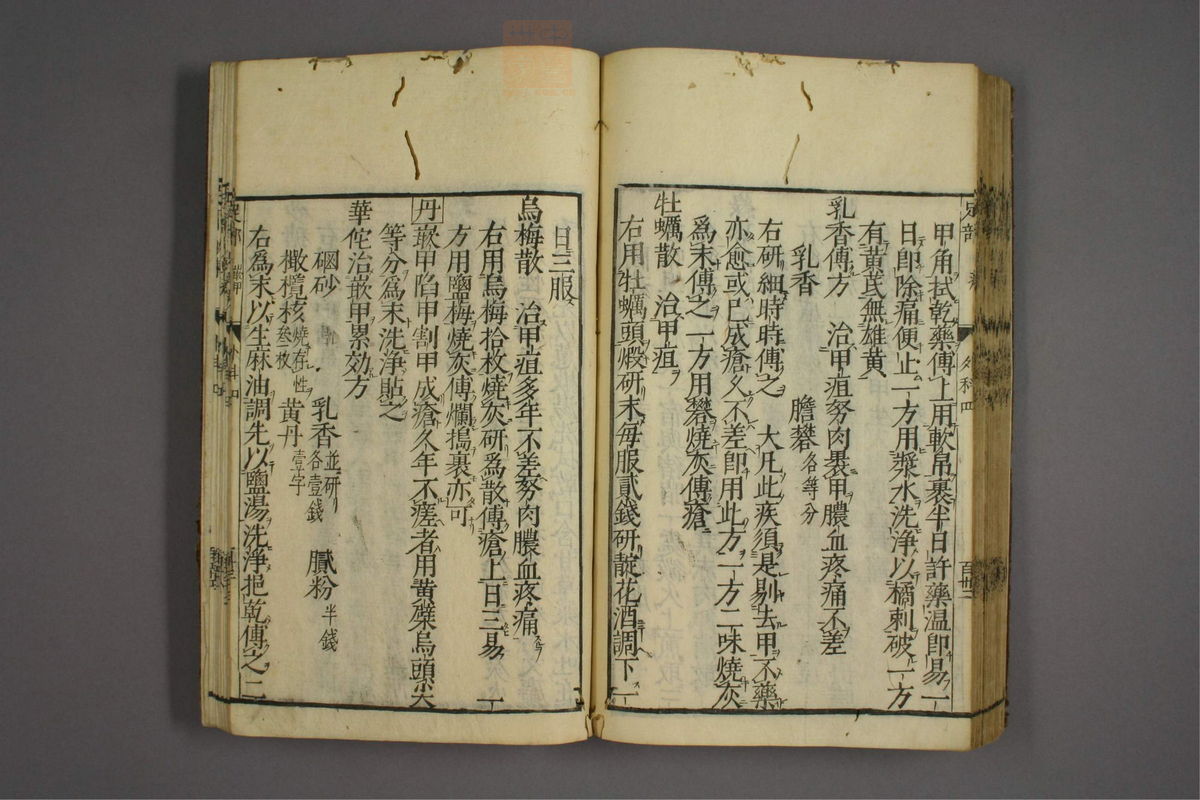 甲角拭乾藥傅上用軟帛裹半日許藥温即易一
日即除痛便止一方用漿水洗淨以橘刺破一方
有黃芪無雄黃
乳香傅方　治甲疽努肉褁甲膿血疼痛不差
乳香　膽礬各等分
右研細時時傅之　大凡此疾須是剔去甲不藥
亦愈或已成瘡久不差即用此方一方二味燒灰
爲末傅之一方用礬燒灰傅瘡
牡蠣散　治甲疽
右用牡蠣頭煅研末每服貳錢研靛花酒調下一
足部
外科四
日三服
烏梅散　治甲疽多年不差努肉膿血疼痛
右用烏梅拾枚燒灰研爲散傅瘡上日三易　一
方用鹽梅燒灰傅爛搗裹亦可
丹嵌甲陷甲割甲成瘡久年不瘥者用黃蘗烏頭尖
等分爲末洗淨貼之
華佗治嵌甲累効方
硇砂　乳香並研各壹錢　膩粉半錢
橄欖核燒存性叁枚　黃丹壹字
右爲末以生麻油調先以鹽湯洗淨挹乾傅之二